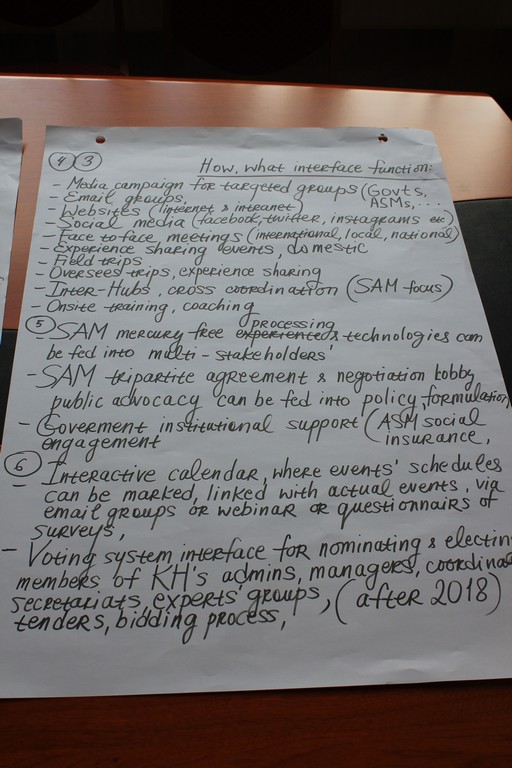 4 3
How, what interface function:
- Media campaign for targeted groups (Govts,
- Email groups, ASMs, ...
- Websites (internet & intranet)
- Social media (facebook, twitter, instagrams etc)
- Face to face meetings (international, local, national)
- Experience sharing events, domestic
- Field trips
- Oversees trips, experience sharing
- Inter-Hubs, cross coordination (SAM focus)
- Onsite training, coaching
processing
5 - SAM mercury free experience's technologies can
be fed into multi-stakeholders
- SAM tripartite agreement & negotiation lobby
public advocacy can be fed into policy formulation
- Goverment institutional support (ASM social
engagement insurance,
6
- Interactive calendar, where events' schedules
can be marked, linked with actual events, via
email groups or webinar or questionnairs of
surveys,
- Voting system interface for nominating & electin
members of KH's admins, managers, coordina
secretariats, experts' groups, (after 2018)
tenders, bidding process,